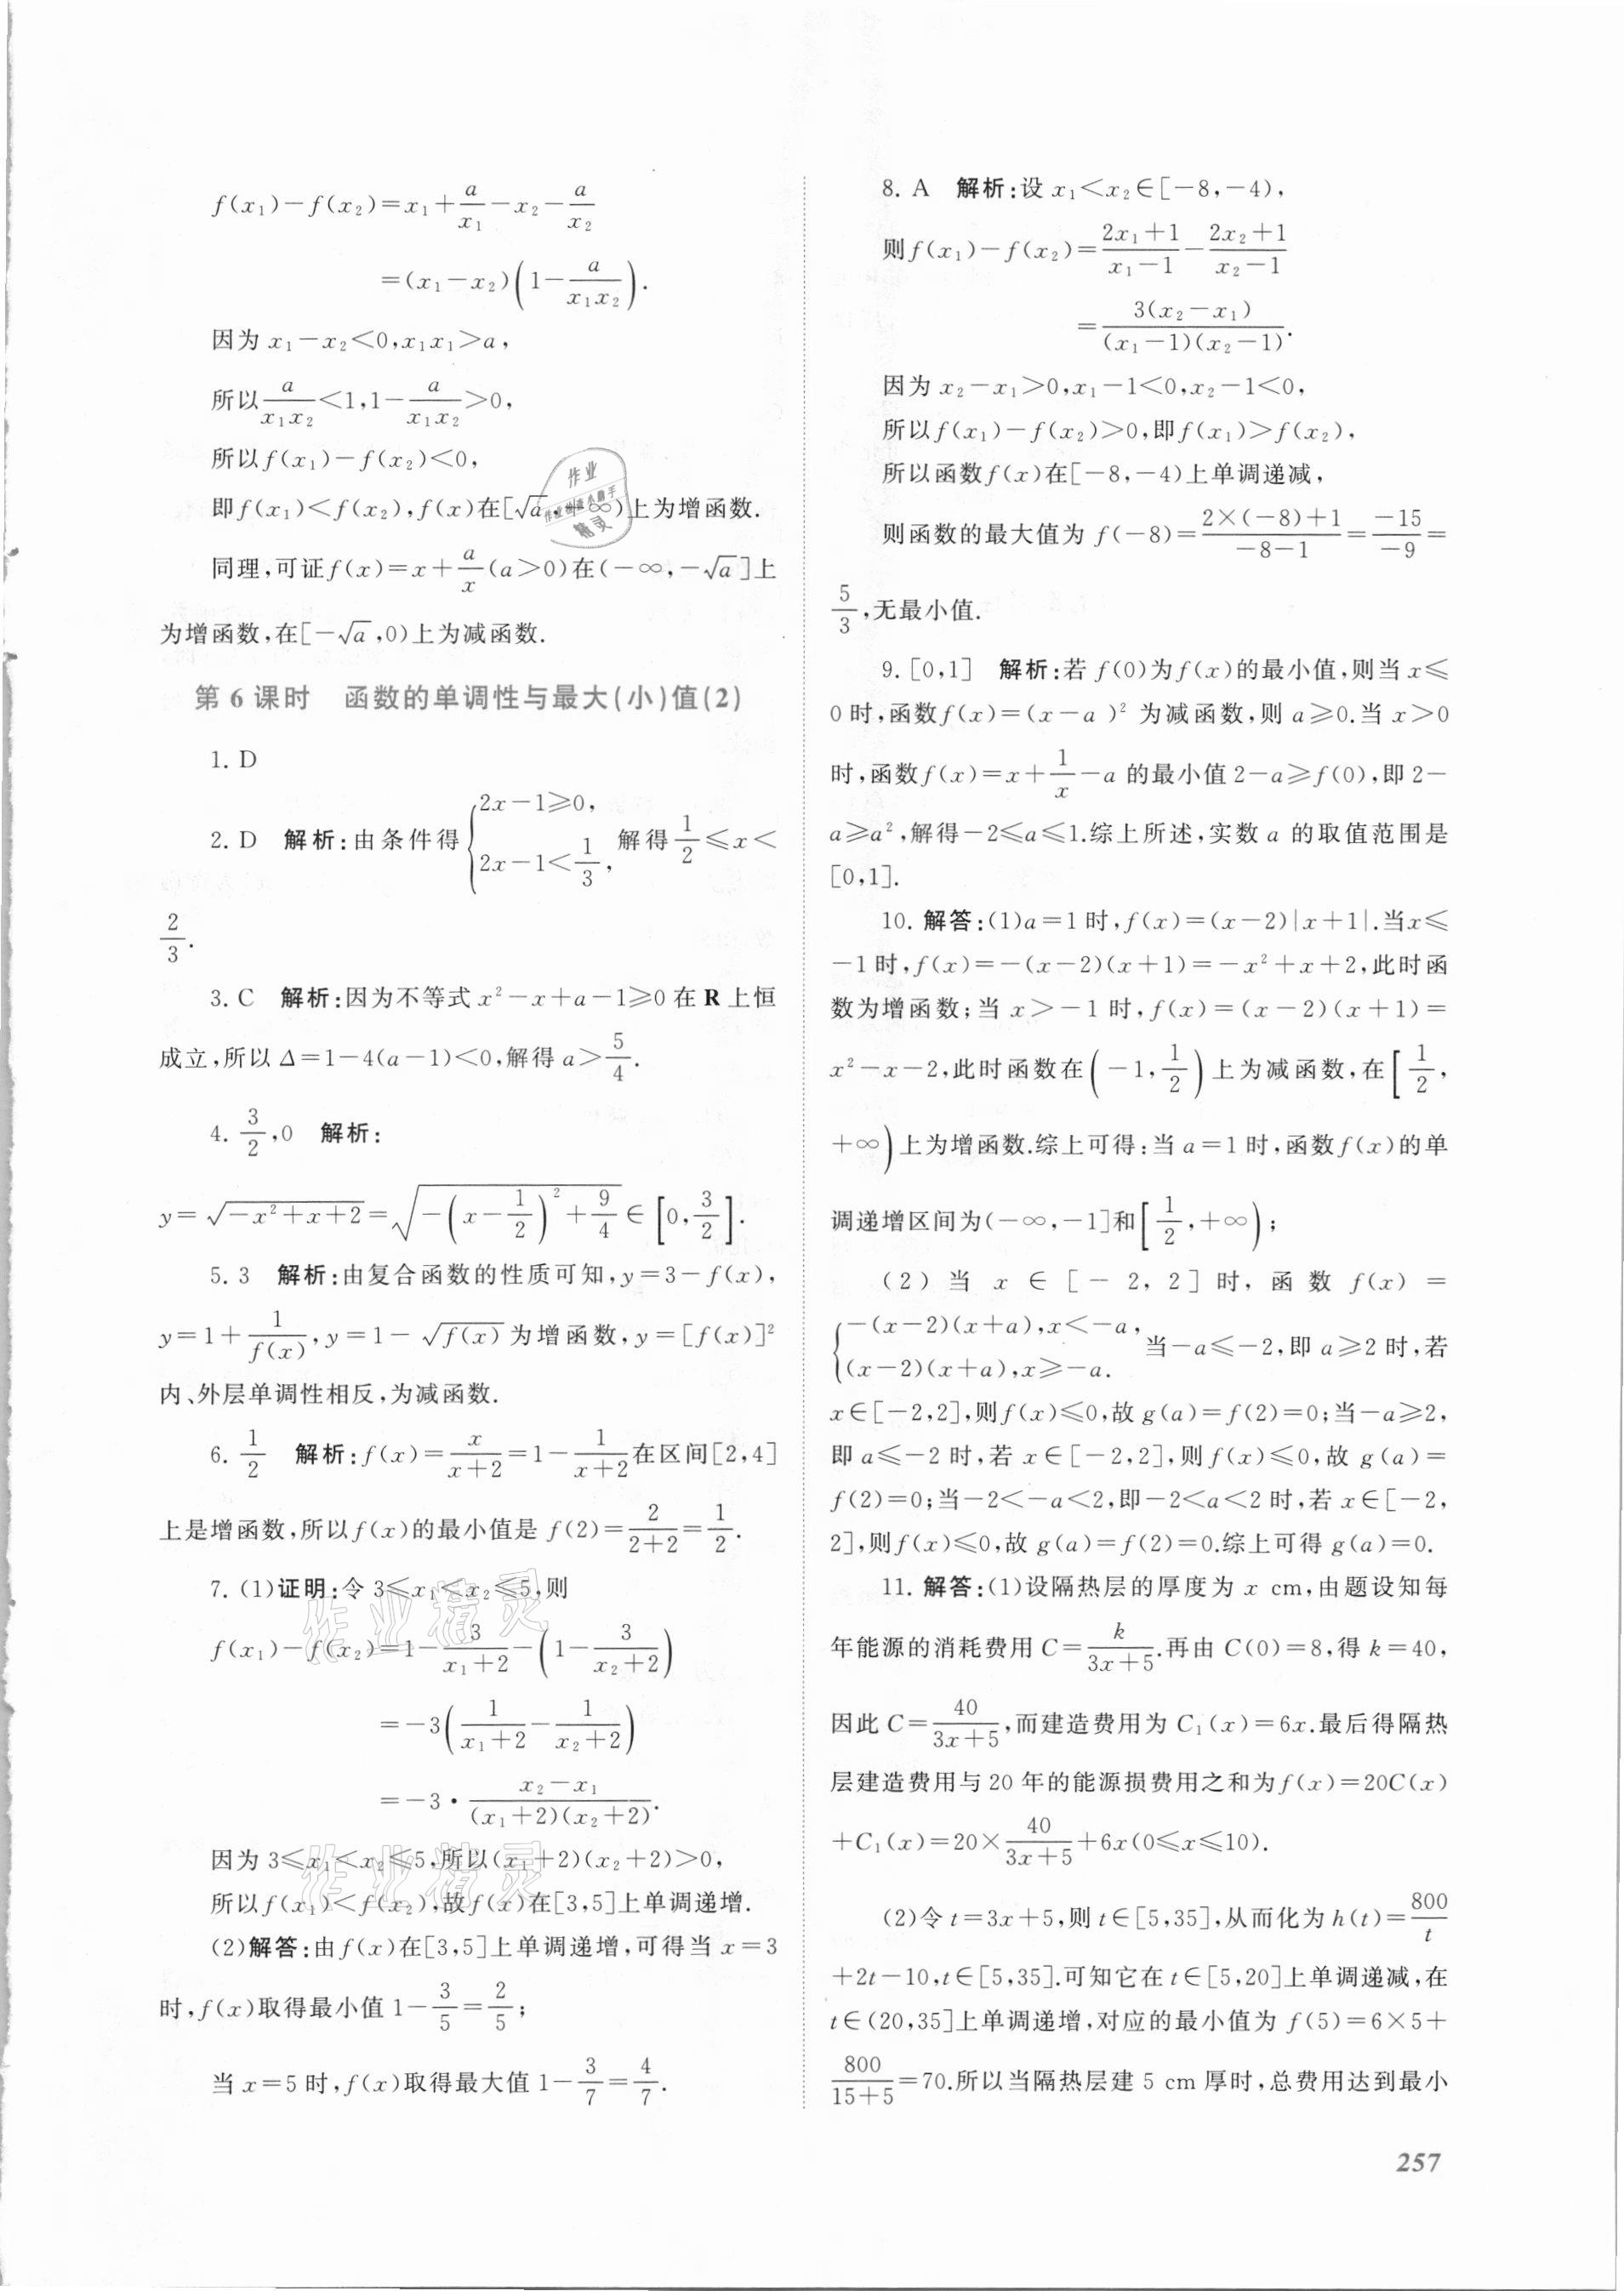 f(x₁)－f(x₂)＝x₁＋a/x₁－x₂－a/x₂
＝(x₁－x₂)(1－a/(x₁x₂)).
因为 x₁－x₂＜0,x₁x₁＞a,
所以a/(x₁x₂)＜1,1－a/(x₁x₂)＞0,
所以f(x₁)－f(x₂)＜0,
即f(x₁)＜f(x₂),f(x)在[√a,＋∞)上为增函数.
同理,可证f(x)＝x＋a/x(a＞0)在(－∞,－√a]上
为增函数,在[－√a,0)上为减函数.
第 6 课时　函数的单调性与最大(小)值(2)
1. D
2. D　解析:由条件得{2x－1≥0, 2x－1＜1/3, 解得1/2≤x＜
2/3.
3. C　解析:因为不等式 x²－x＋a－1≥0 在 R 上恒
成立,所以 Δ＝1－4(a－1)＜0,解得 a＞5/4.
4. 3/2,0　解析:
y＝√(－x²＋x＋2)＝√(－(x－1/2)²＋9/4)∈[0,3/2].
5. 3　解析:由复合函数的性质可知,y＝3－f(x),
y＝1＋1/f(x),y＝1－√f(x) 为增函数,y＝[f(x)]²
内、外层单调性相反,为减函数.
6. 1/2　解析:f(x)＝x/(x＋2)＝1－1/(x＋2)在区间[2,4]
上是增函数,所以f(x)的最小值是 f(2)＝2/(2＋2)＝1/2.
7. (1)证明:令 3≤x₁≤x₂≤5,则
f(x₁)－f(x₂)＝1－3/(x₁＋2)－(1－3/(x₂＋2))
＝－3(1/(x₁＋2)－1/(x₂＋2))
＝－3·(x₂－x₁)/((x₁＋2)(x₂＋2)).
因为 3≤x₁＜x₂≤5,所以(x₁＋2)(x₂＋2)＞0,
所以f(x₁)＜f(x₂),故f(x)在[3,5]上单调递增.
(2)解答:由f(x)在[3,5]上单调递增,可得当 x＝3
时,f(x)取得最小值 1－3/5＝2/5;
当 x＝5 时,f(x)取得最大值 1－3/7＝4/7.
8. A　解析:设 x₁＜x₂∈[－8,－4),
则f(x₁)－f(x₂)＝(2x₁＋1)/(x₁－1)－(2x₂＋1)/(x₂－1)
＝3(x₂－x₁)/((x₁－1)(x₂－1)).
因为 x₂－x₁＞0,x₁－1＜0,x₂－1＜0,
所以f(x₁)－f(x₂)＞0,即f(x₁)＞f(x₂),
所以函数f(x)在[－8,－4)上单调递减,
则函数的最大值为 f(－8)＝(2×(－8)＋1)/(－8－1)＝－15/－9＝
5/3,无最小值.
9. [0,1]　解析:若 f(0)为f(x)的最小值,则当 x≤
0 时,函数f(x)＝(x－a )² 为减函数,则 a≥0.当 x＞0
时,函数f(x)＝x＋1/x－a 的最小值 2－a≥f(0),即 2－
a≥a²,解得－2≤a≤1.综上所述,实数 a 的取值范围是
[0,1].
10. 解答:(1)a＝1 时,f(x)＝(x－2)|x＋1|.当x≤
－1 时,f(x)＝－(x－2)(x＋1)＝－x²＋x＋2,此时函
数为增函数;当 x＞－1 时,f(x)＝(x－2)(x＋1)＝
x²－x－2,此时函数在(－1,1/2)上为减函数,在[1/2,
＋∞)上为增函数.综上可得:当 a＝1 时,函数f(x)的单
调递增区间为(－∞,－1]和[1/2,＋∞);
(2)当 x∈[－2,2]时,函数 f(x)＝
{－(x－2)(x＋a),x＜－a, (x－2)(x＋a),x≥－a. 当－a≤－2,即 a≥2 时,若
x∈[－2,2],则f(x)≤0,故 g(a)＝f(2)＝0;当－a≥2,
即 a≤－2 时,若 x∈[－2,2],则f(x)≤0,故 g(a)＝
f(2)＝0;当－2＜－a＜2,即－2＜a＜2 时,若 x∈[－2,
2],则f(x)≤0,故 g(a)＝f(2)＝0.综上可得 g(a)＝0.
11. 解答:(1)设隔热层的厚度为 x cm,由题设知每
年能源的消耗费用 C＝k/(3x＋5).再由 C(0)＝8,得 k＝40,
因此 C＝40/(3x＋5),而建造费用为 C₁(x)＝6x.最后得隔热
层建造费用与 20 年的能源损费用之和为f(x)＝20C(x)
＋C₁(x)＝20×40/(3x＋5)＋6x(0≤x≤10).
(2)令 t＝3x＋5,则 t∈[5,35],从而化为 h(t)＝800/t
＋2t－10,t∈[5,35].可知它在 t∈[5,20]上单调递减,在
t∈(20,35]上单调递增,对应的最小值为 f(5)＝6×5＋
800/(15＋5)＝70.所以当隔热层建 5 cm 厚时,总费用达到最小
257
作业
作业检查小助手
精灵
作业精灵
作业精灵